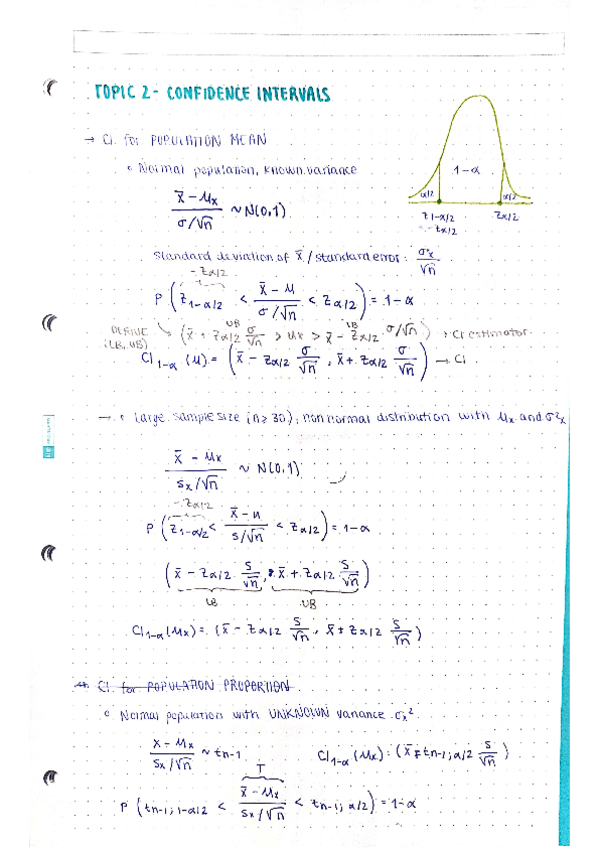 TOPIC 2 - CONFIDENCE INTERVALS
→ CI. for POPULATION MEAN
° Normal population, known variance
x̄ - μx / σ/√n ~ N(0,1)
1-α
α/2 α/2
z1-α/2 zα/2
= -zα/2
Standard deviation of x̄ / standard error: σx/√n
-zα/2
P (z1-α/2 < x̄ - μ / σ/√n < zα/2) = 1-α
UB LB
DERIVE (LB, UB) ↘ (x̄ + zα/2 σ/√n > μx > x̄ - zα/2 · σ/√n) → CI estimator.
CI1-α (μ) = (x̄ - zα/2 σ/√n , x̄ + zα/2 σ/√n) → CI
→ ° Large sample size (n ≥ 30), non normal distribution with μx and σ²x
x̄ - μx / sx/√n ~ N(0,1)
-zα/2
P (z1-α/2 < x̄ - μ / s/√n < zα/2) = 1-α
(x̄ - zα/2 s/√n , x̄ + zα/2 s/√n)
LB UB
CI1-α (μx) = (x̄ - zα/2 s/√n , x̄ + zα/2 s/√n)
CI. for POPULATION PROPORTION
° Normal population with UNKNOWN variance σx²
x̄ - μx / sx/√n ~ tn-1 CI1-α (μx) : (x̄ ∓ tn-1; α/2 s/√n)
T
P (tn-1; 1-α/2 < x̄ - μx / sx/√n < tn-1; α/2) = 1-α